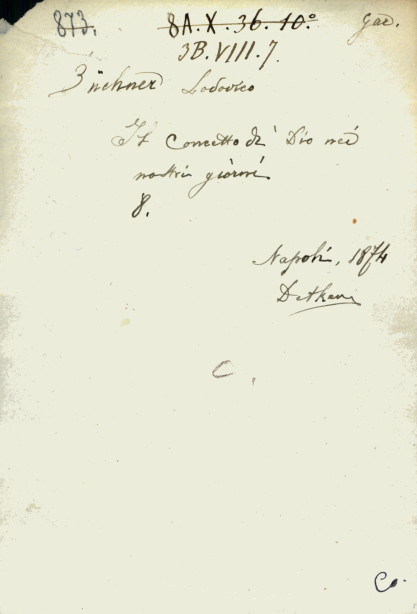 873. 8A.X.36.10.° Gae.
3B.VIII.7.
Büchner Lodovico
Il Concetto di Dio nei
nostri giorni
8.
Napoli, 1874
Detken
C.
Co.